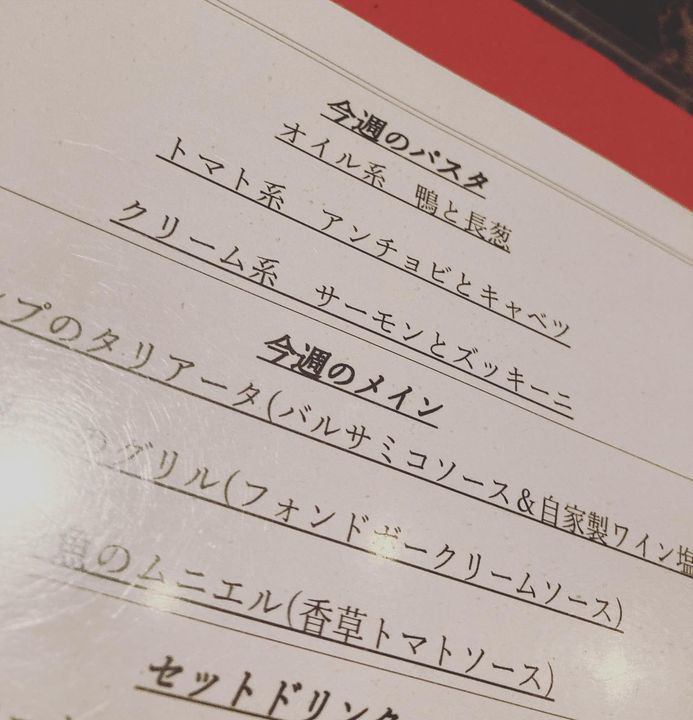 今週のパスタ
オイル系　鴨と長葱
トマト系　アンチョビとキャベツ
クリーム系　サーモンとズッキーニ
今週のメイン
プのタリアータ(バルサミコソース&自家製ワイン塩
のグリル(フォンドボークリームソース)
魚のムニエル(香草トマトソース)
セットドリンク